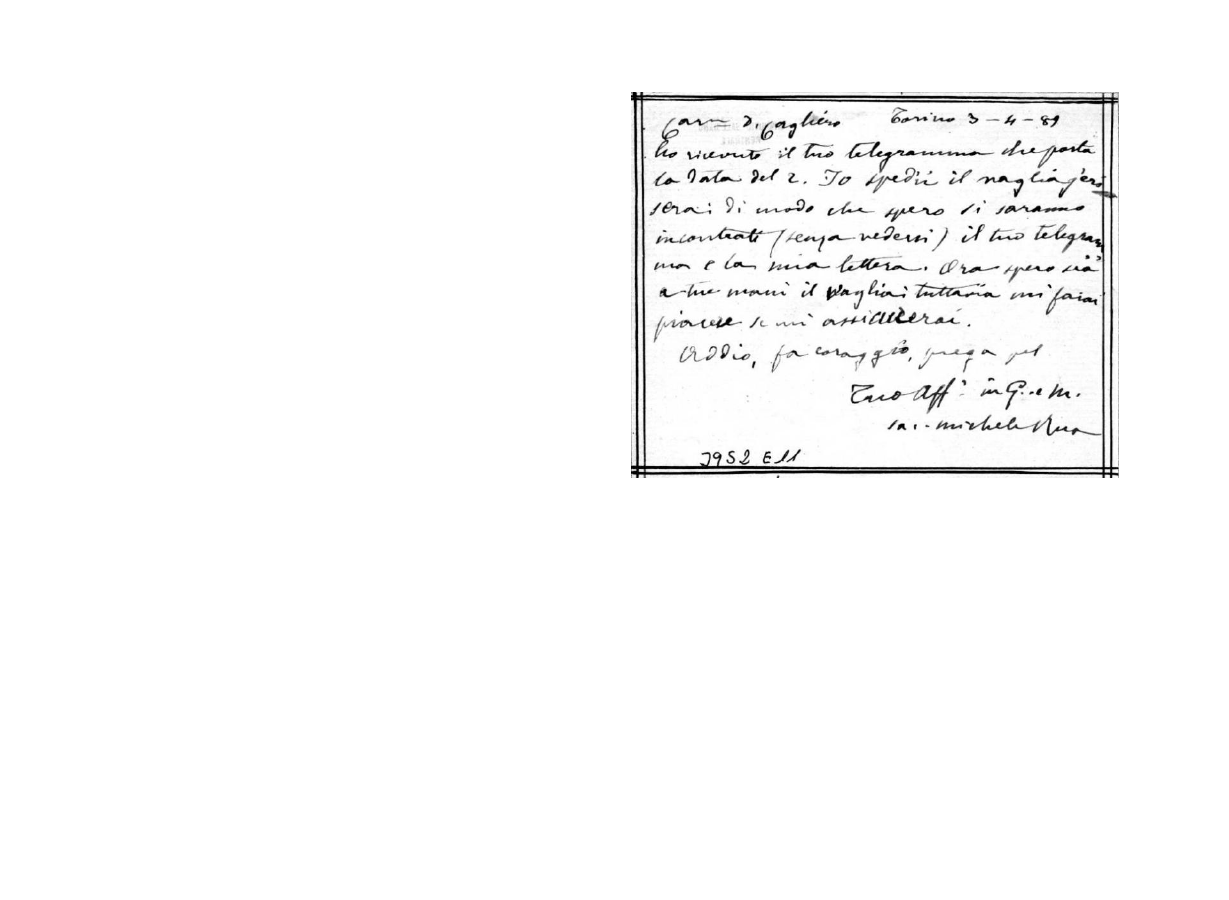 Car.mo D. Cagliero Torino 3-4-89
ho ricevuto il tuo telegramma che porta
la data del 2. Io spedii il vaglia jeri
sera; di modo che spero si saranno
incontrati (senza vedersi) il tuo telegram
ma e la mia lettera. Ora spero sia
a tue mani il vaglia; tuttavia mi farai
piacere se mi assicurerai.
Addio, fa coraggio, prega pel
Tuo Aff.o in G. e M.
Sac. Michele Rua
3952 E11